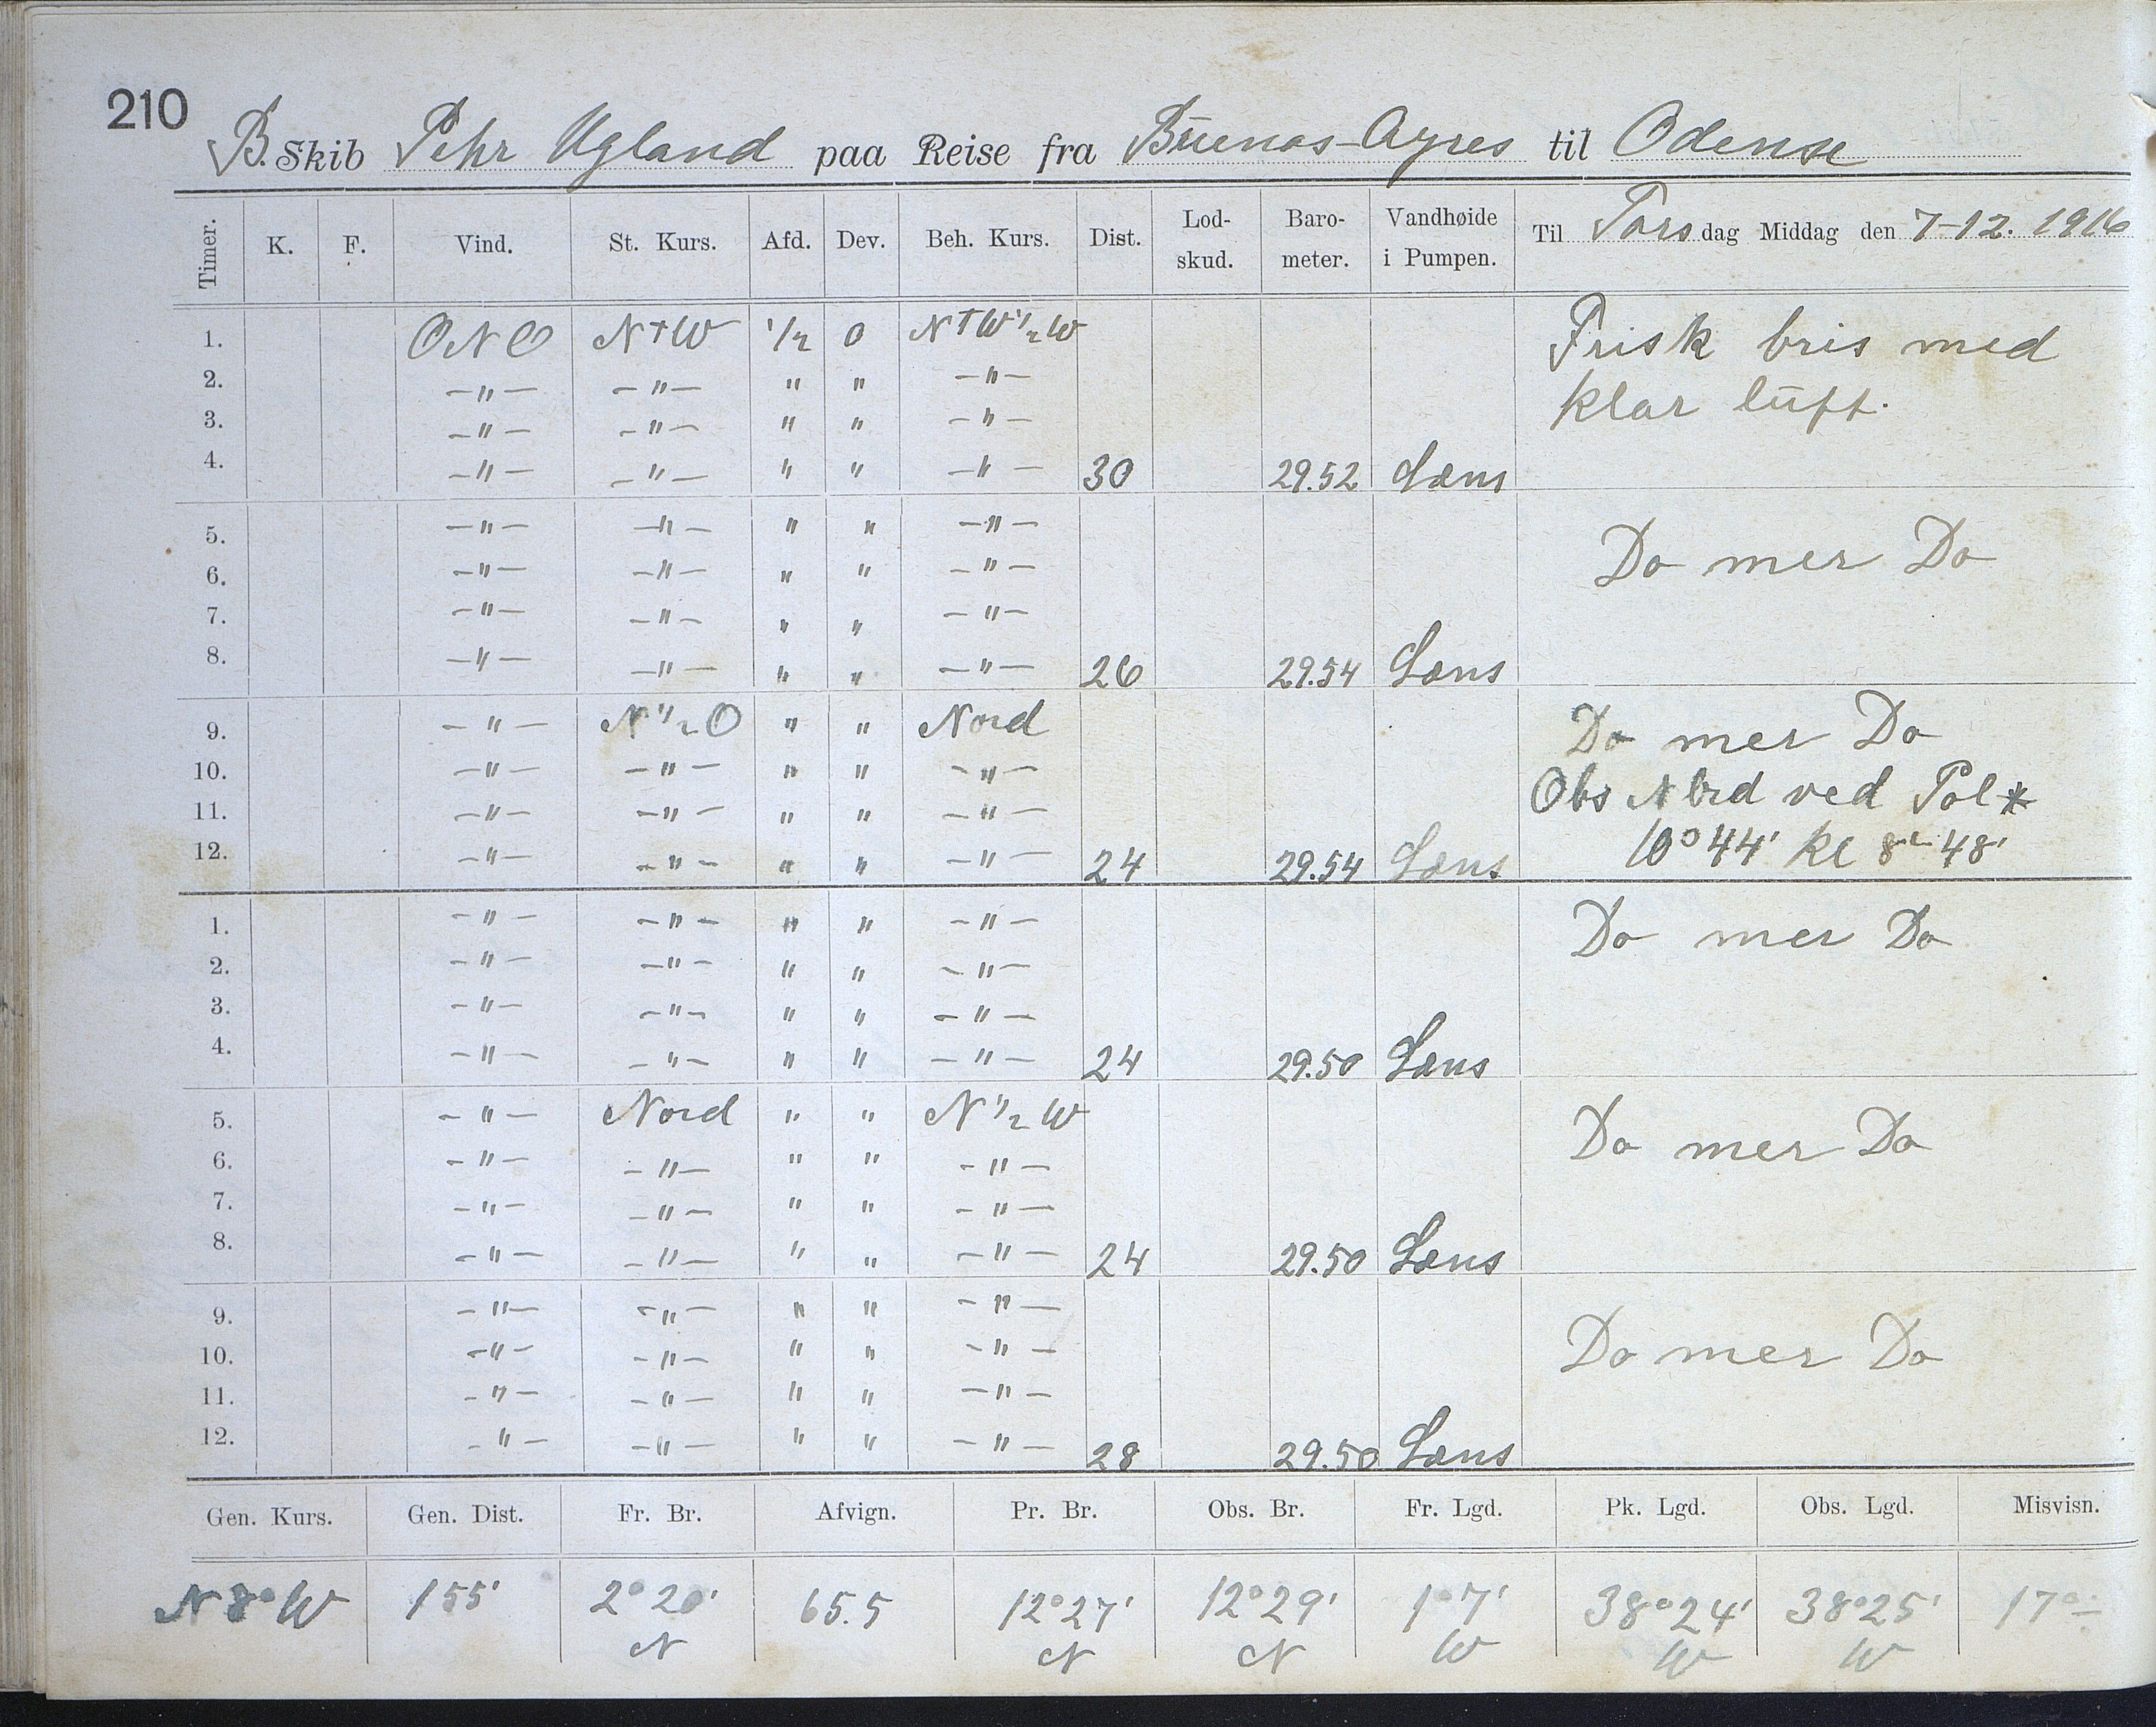 210
B. Skib Pehr Ugland paa Reise fra Buenos-Ayres til Odense
Timer. K. F. Vind. St. Kurs. Afd. Dev. Beh. Kurs. Dist. Lod-skud. Baro-meter. Vandhøide i Pumpen. Til Torsdag Middag den 7-12. 1916
1. ONO N+W 1/2 0 N+W 1/2 W Frisk bris med
2. -"- -"- " " -"- klar luft.
3. -"- -"- " " -"-
4. -"- -"- " " -"- 30 29.52 Læns
5. -"- -"- " " -"- Do mer Do
6. -"- -"- " " -"-
7. -"- -"- " " -"-
8. -"- -"- " " -"- 26 29.54 Læns
9. -"- N 1/2 O " " Nord Do mer Do
10. -"- -"- " " -"- Obs N brd ved Pol*
11. -"- -"- " " -"- 10° 44' Kl 8 48'
12. -"- -"- " " -"- 24 29.54 Læns
1. -"- -"- " " -"- Do mer Do
2. -"- -"- " " -"-
3. -"- -"- " " -"-
4. -"- -"- " " -"- 24 29.50 Læns
5. -"- Nord " " N 1/2 W Do mer Do
6. -"- -"- " " -"-
7. -"- -"- " " -"-
8. -"- -"- " " -"- 24 29.50 Læns
9. -"- -"- " " -"- Do mer Do
10. -"- -"- " " -"-
11. -"- -"- " " -"-
12. -"- -"- " " -"- 28 29.50 Læns
Gen. Kurs. Gen. Dist. Fr. Br. Afvign. Pr. Br. Obs. Br. Fr. Lgd. Pk. Lgd. Obs. Lgd. Misvisn.
N 8° W 155' 2° 20' 65.5 12° 27' 12° 29' 1° 7' 38° 24' 38° 25' 17°
N N N W W W